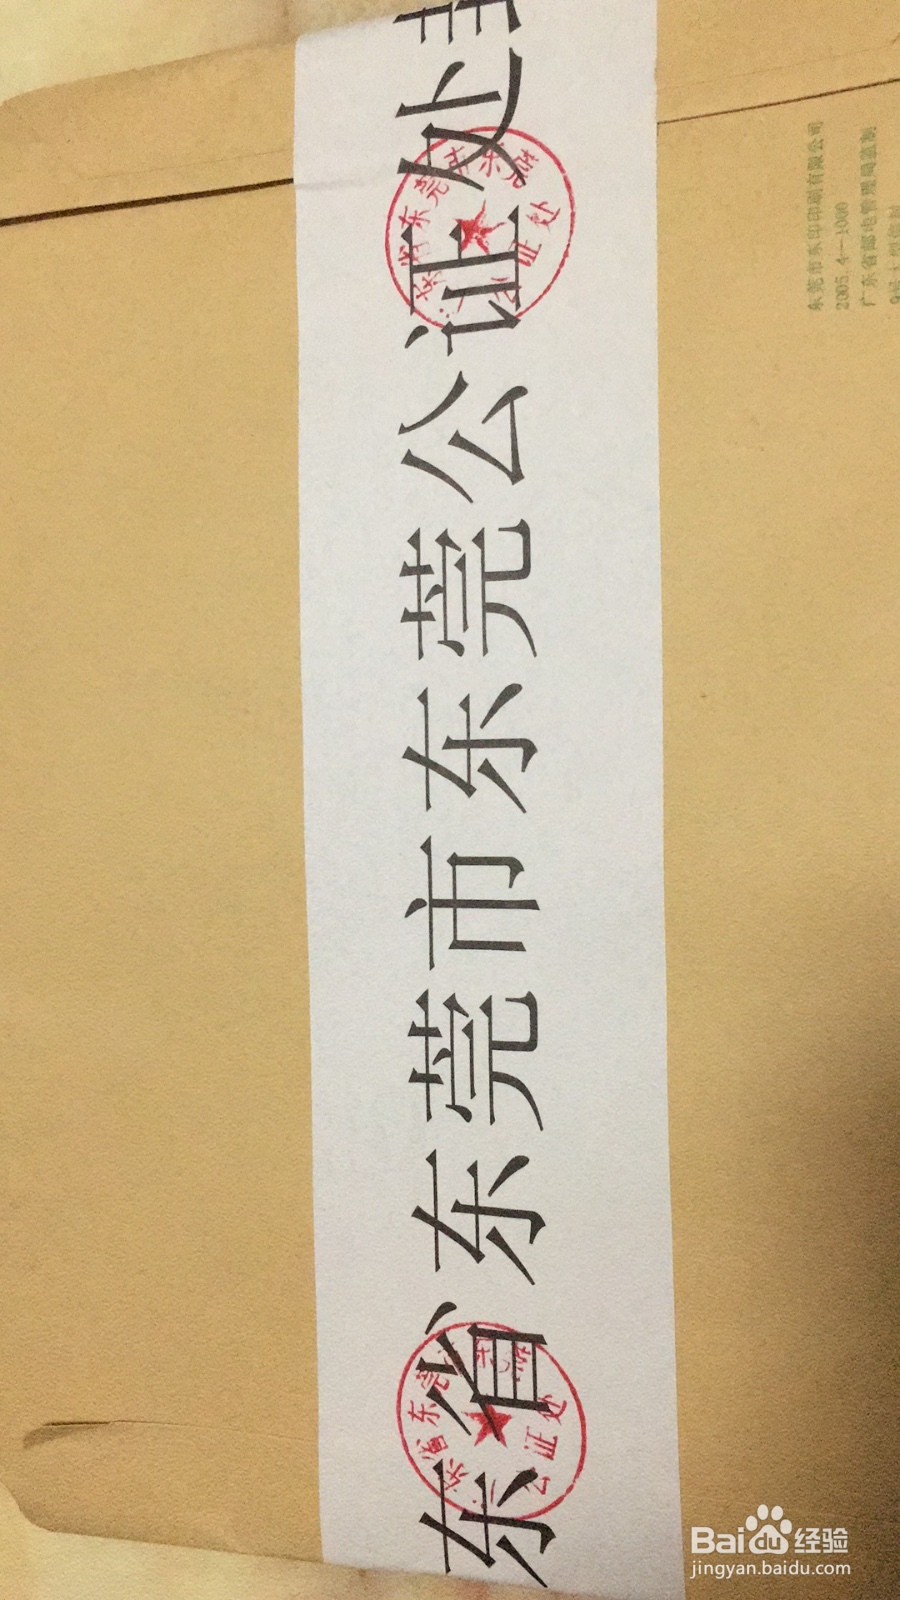 东省东莞市东莞公证处
东省东莞市东莞
公证处
省东莞 东莞
公证处
东莞市东印印刷有限公司
2005.4—1000
广东省邮电管理局监制
Bai du 经验
jingyan.baidu.com